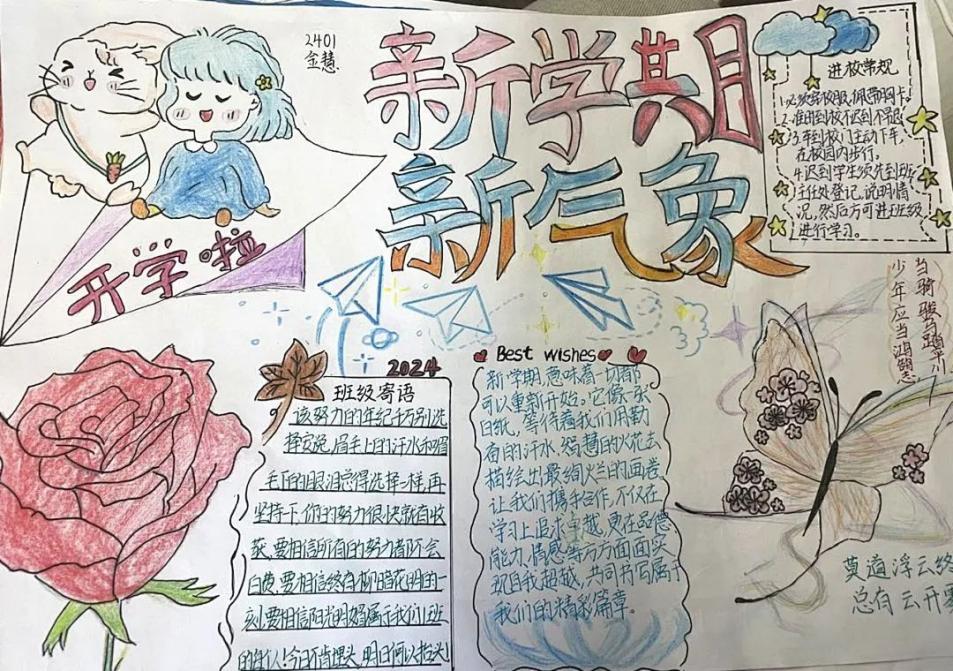 2401
金慧
新学期
新气象
开学啦
进校常规
1.必须穿校服,佩带胸卡。
2.准时到校不迟到不早退
3.车到校门主动下车,
在校园内步行。
4.迟到学生须先到班
主任处登记,说明情
况,然后方可进班级
进行学习。
当骑骏马踏平川
少年应当鸿鹄志
2024
班级寄语
该努力的年纪千万别选
择安逸,眉毛上的汗水和眉
毛下的眼泪总得选择一样,再
坚持下,你的努力很快就有收
获,要相信所有的努力都不会
白费,要相信终有柳暗花明的一
刻,要相信阳光明媚属于我们班
的每个人!今日不肯埋头,明日何以抬头!
Best wishes
新学期,意味着一切都
可以重新开始。它像一张
白纸,等待着我们用勤
奋的汗水、智慧的火花去
描绘出最绚烂的画卷。
让我们携手合作,不仅在
学习上追求卓越,更在品德
能力、情感等方方面面实
现自我超越,共同书写属于
我们的精彩篇章。
莫道浮云终
总有云开